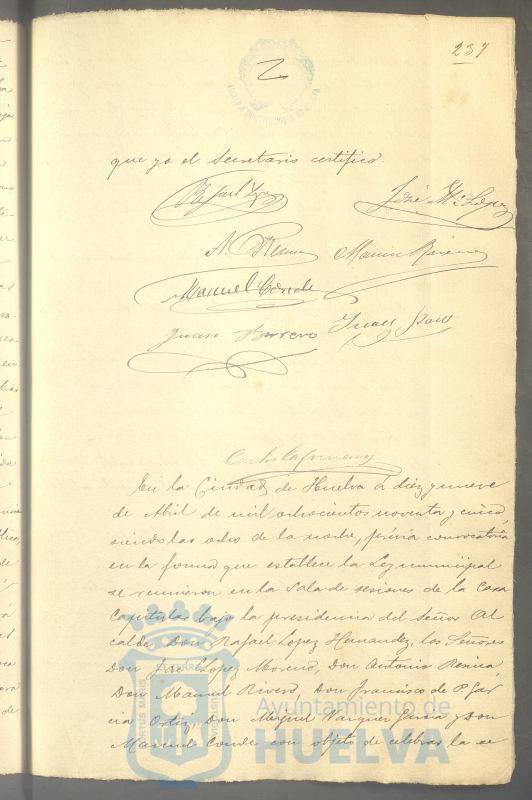 237
que yo el Secretario certifico.
Rafael Lopez
José Mª Lopez
A.
Manuel Conde
Juan Borrero
Juan
Carlos
En la Ciudad de Huelva á diez y nueve
de Abril de mil ochocientos noventa y cinco,
siendo las ocho de la noche, prévia convocatoria
en la forma que establece la Ley municipal
se reunieron en la Sala de sesiones de la Casa
Capitular bajo la presidencia del Señor Al
calde Don Rafael Lopez Hernandez, los Señores
Don José Lopez Moreno, Don Antonio
Don Manuel Rivero, Don Francisco de P. Gar
cia Ortiz, Don Miguel Vazquez Garcia y Don
Manuel Conde con objeto de celebrar la se
Ayuntamiento de
HUELVA